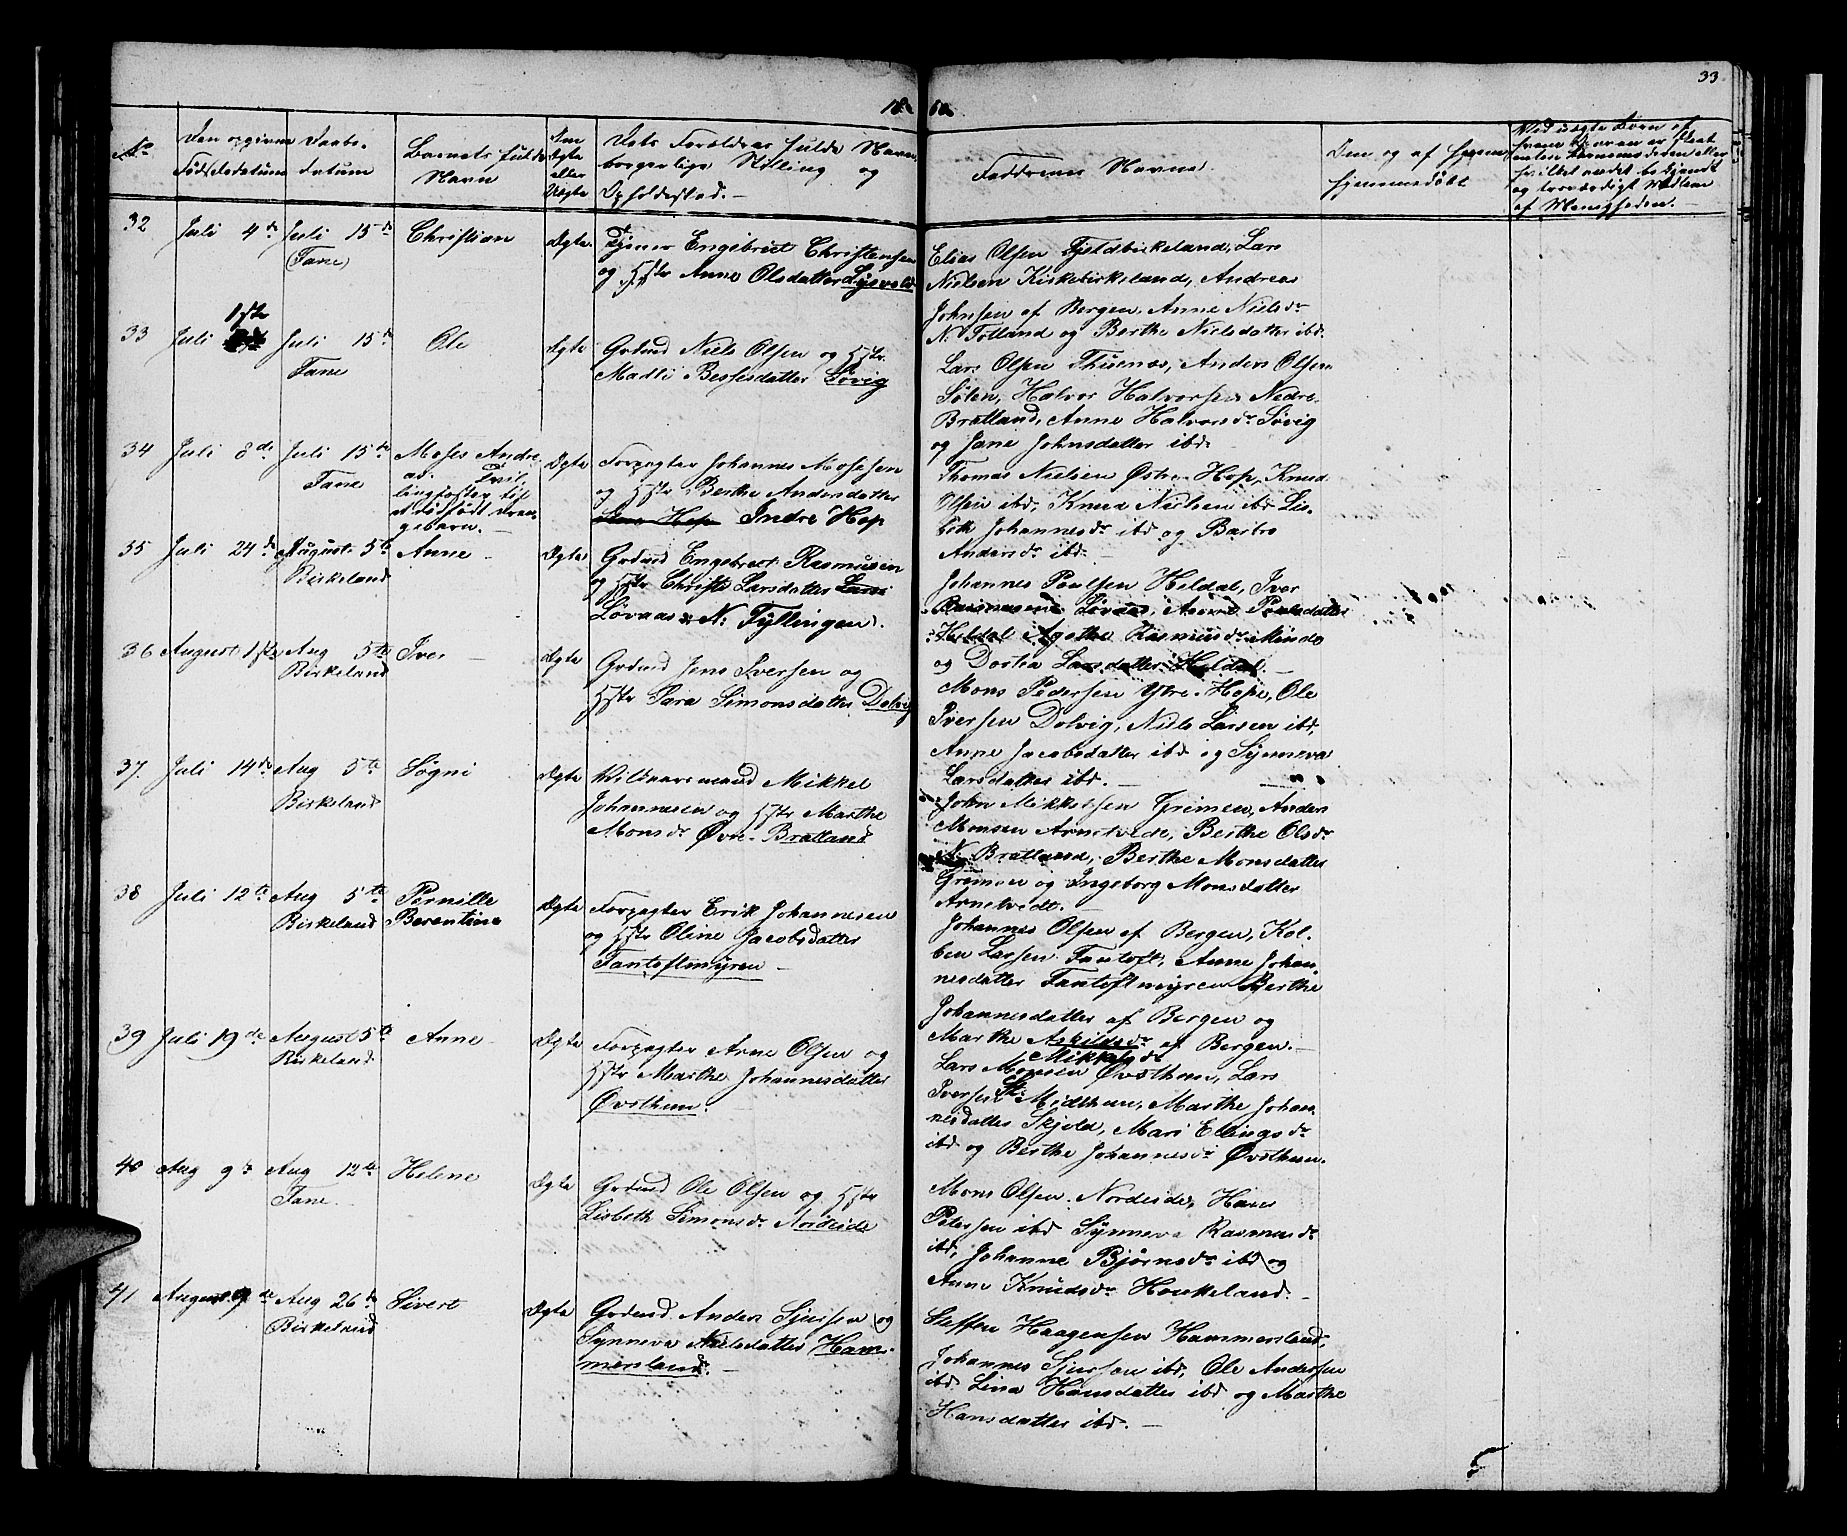 33
18 60.
No
Den opgivne
Fødselsdatum
Daabs-
datum
Barnets fulde
Navn
Om
Ægte
eller
Uægte
Dets Forældres fulde Navn,
borgerlige Stilling og
Opholdssted. -
Faddrenes Navne.
Om og af hvem
hjemmedøbt
Ved uægte Børn
32
Juli 4de
Juli 15de
(Fane)
Christian
Ægte.
Engebret Christensen
og Hstr Anne Olsdatter Lysvold
Elias Olsen Fjeldbirkeland, Lars
Nielsen Kirkebirkeland, Andreas
Johnsen af Bergen, Anne Nielsdr
N. Totland og Berthe Nielsdatter ibd.
33
Juli 1ste
Juli 15de
Fane
Ole
Ægte
Grdmd Niels Olsen og Hstr.
Madli Bessesdatter Søvig
Lars Olsen Thuenæs, Anders Olsen
Sølen, Halvor Halvorsen Nedre-
Bratland, Anne Halvorsdr Søvig
og Jane Johnsdatter ibd.
34
Juli 8de
Juli 15de
Fane
Moses Andre-
as. Tvil-
lingfoster til
et dødfødt Dren-
gebarn. -
Ægte
Forpagter Johannes Mosesen
og Hstr Berthe Andersdatter
Indre Hop
Thomas Nielsen Østre-Hop, Knud
Olsen ibd, Knud Nielsen ibd Lis-
beth Johannesdr ibd og Barbro
Andersdr ibd.
35
Juli 24de
August 5te
Birkeland
Anne -
Ægte
Grdmd Engebret Rasmusen
og Hstr Christi Larsdatter
Løvaas N: Fyllingen.
Johannes Poulsen Heldal, Iver
Rasmusen Løvaas, Anne Poulsdatter
Heldal Agathe Rasmusdr Minde
og Dortea Larsdatter Heldal. -
36
August 1ste
Aug 5te
Birkeland
Iver -
Ægte
Grdmd Jens Iversen og
Hstr Sara Simonsdatter Dolvig
Mons Pedersen Ytre-Hope, Ole
Iversen Dolvig, Niels Larsen ibd,
Anne Jacobsdatter ibd og Synneva
Larsdatter ibd. -
37.
Juli 14de
Aug 5te
Birkeland
Søgni
Ægte
Vilkaarsmand Mikkel
Johannesen og Hstr Marthe
Monsdr Øvre-Bratland
John Mikkelsen Grimen, Anders
Monsen Arnetvedt, Berthe Olsdr
N. Bratland, Berthe Monsdatter
Grimen og Ingeborg Monsdatter
Arnetvedt. -
38
Juli 12te
Aug 5te
Birkeland
Pernille
Berentine
Ægte
Forpagter Erik Johannesen
og Hstr Oline Jacobsdatter
Fantoftmyren -
Johannes Olsen af Bergen, Kol-
ben Larsen Fantoft, Anne Johan-
nesdatter Fantoftmyren Berthe
Johannesdatter af Bergen og
Marthe af Bergen. -
Mikkelsdr
39
Juli 19de
August 5te
Birkeland
Anne -
Ægte
Forpagter Arne Olsen og
Hstr Marthe Johannesdatter
Øvsthun.
Lars Monsen Øvsthun, Lars
Iversen Midthun, Marthe Johan-
nesdatter Skjold, Mari Ellingsdr
ibd og Berthe Johannesdr Øvsthun.
40
Aug 9de
Aug 12te
Fane.
Helene
Ægte
Grdmd Ole Olsen og Hstr
Lisbeth Simonsdr Nordeide
Mons Olsen Nordeide, Hans
Petersen ibd Synneva Rasmusdr
ibd, Johanne Bjørnsdr ibd og
Anne Knudsdr Houkeland. -
41
August 9de
Aug 26de
Birkeland
Sivert
Ægte
Grdmd Anders Sjursen og
Synneva Nielsdatter Ham-
mersland. -
Steffen Haagensen Hammersland,
Johannes Sjursen ibd, Ole Andersen
ibd. Lina Hansdatter ibd og Marthe
Hansdatter ibd. -